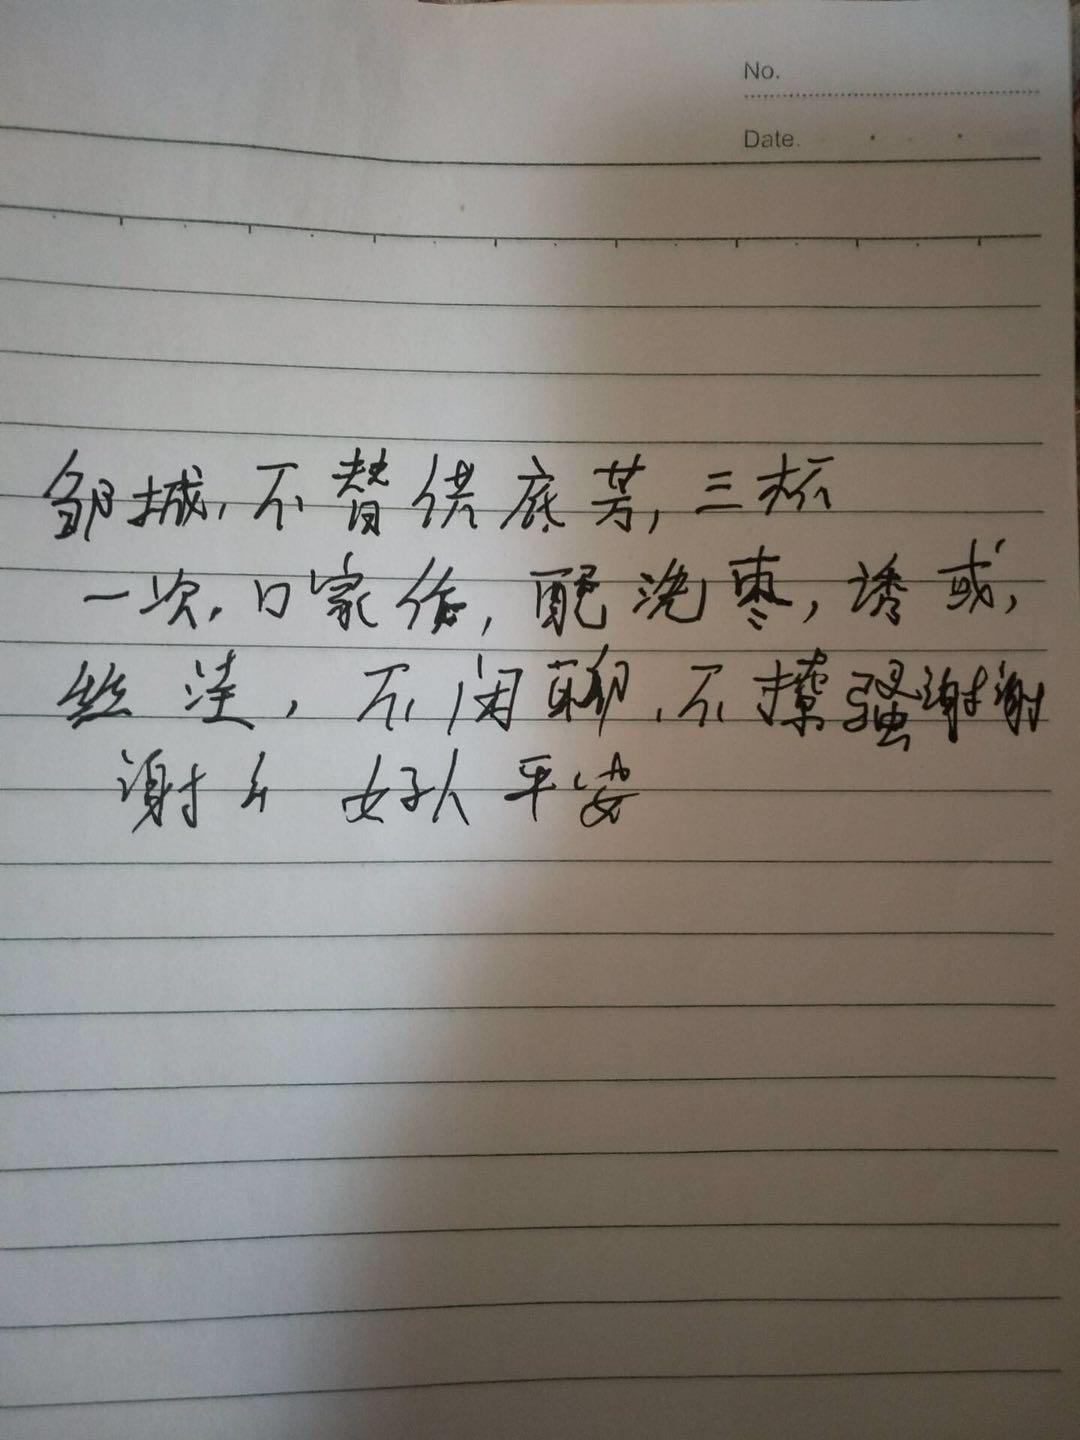 No.
Date.
邹城，不替供底芳，三杯
一次，口家俗，配洗枣，诱或，
丝洼，不闲聊，不撩骚谢谢
谢么 好人平安